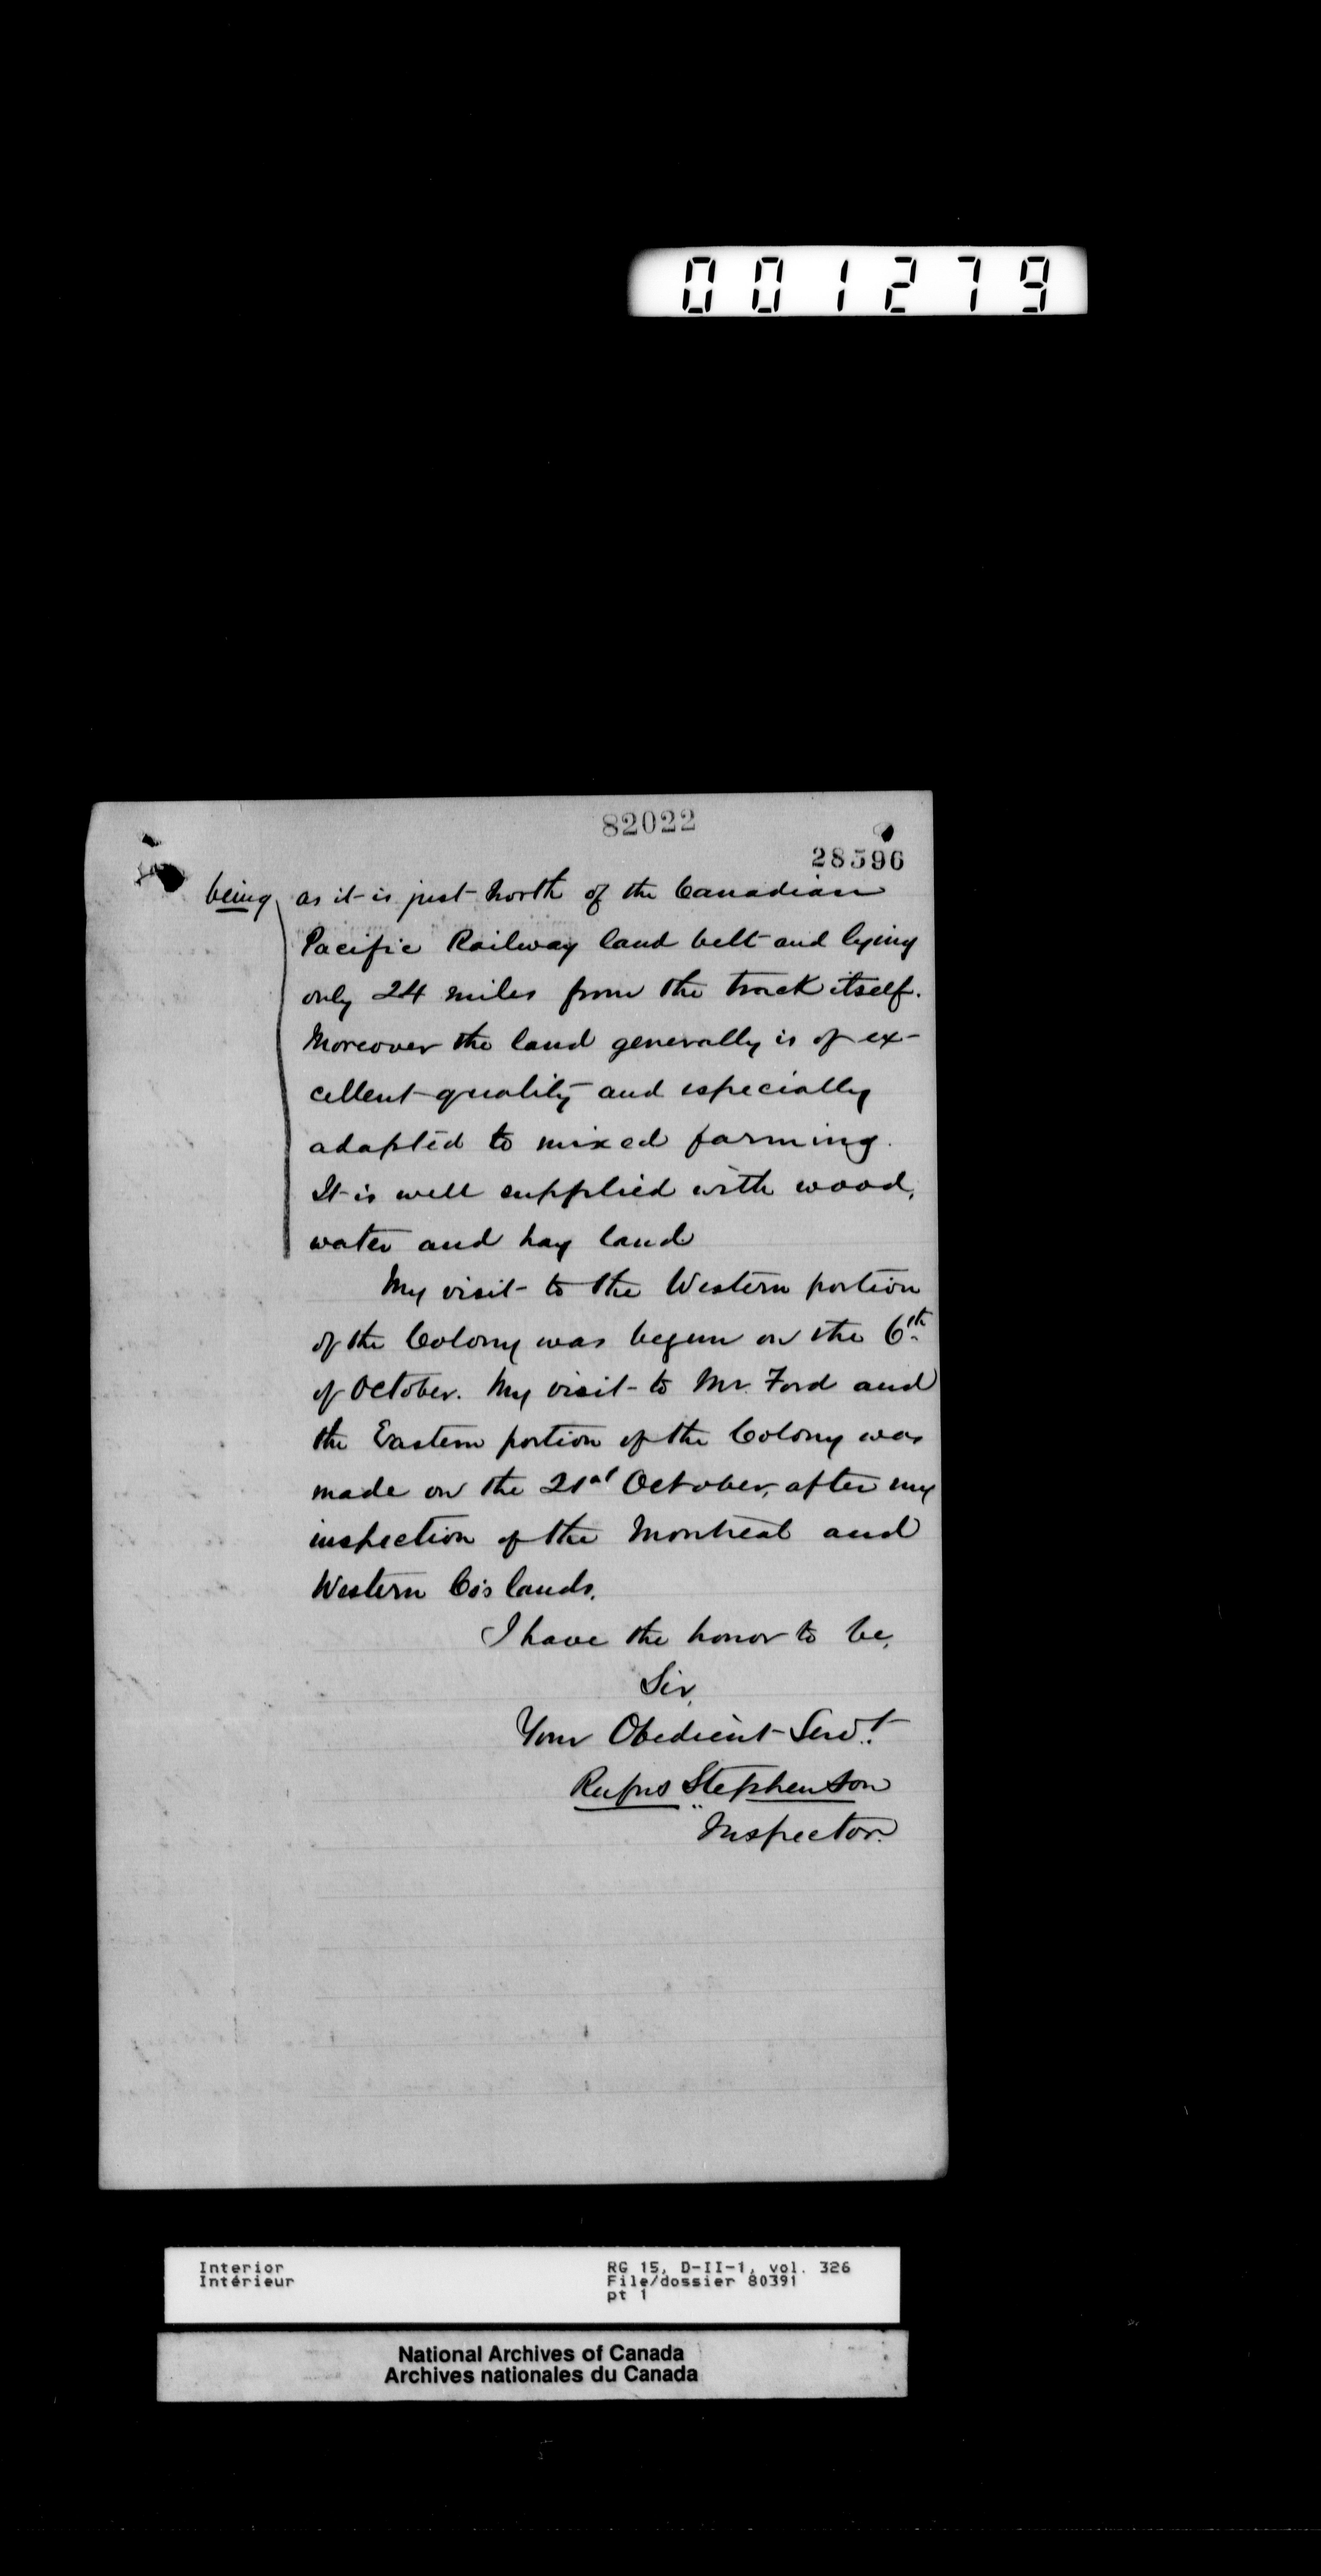 001279
82022
28596
being as it is just North of the Canadian
Pacific Railway land belt and lying
only 24 miles from the track itself.
Moreover the land generally is of ex-
cellent quality and especially
adapted to mixed farming.
It is well supplied with wood,
water and hay land
My visit to the Western portion
of the Colony was begun on the 6th
of October. My visit to Mr. Ford and
the Eastern portion of the Colony was
made on the 21st October, after my
inspection of the Montreal and
Western Co's lands.
I have the honor to be,
Sir,
Your Obedient Servt.
Rufus Stephenson
Inspector.
Interior
Intérieur
RG 15, D-II-1, vol. 326
File/dossier 80391
pt 1
National Archives of Canada
Archives nationales du Canada